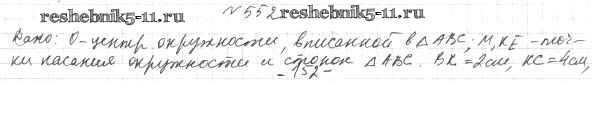 №552
reshebnik5-11.ru
reshebnik5-11.ru
Дано: О-центр окружности, вписанной в △ABC; M,K,E -точ-
ки касания окружности и сторон △ABC. BK=2см, KC=4см,
-152-